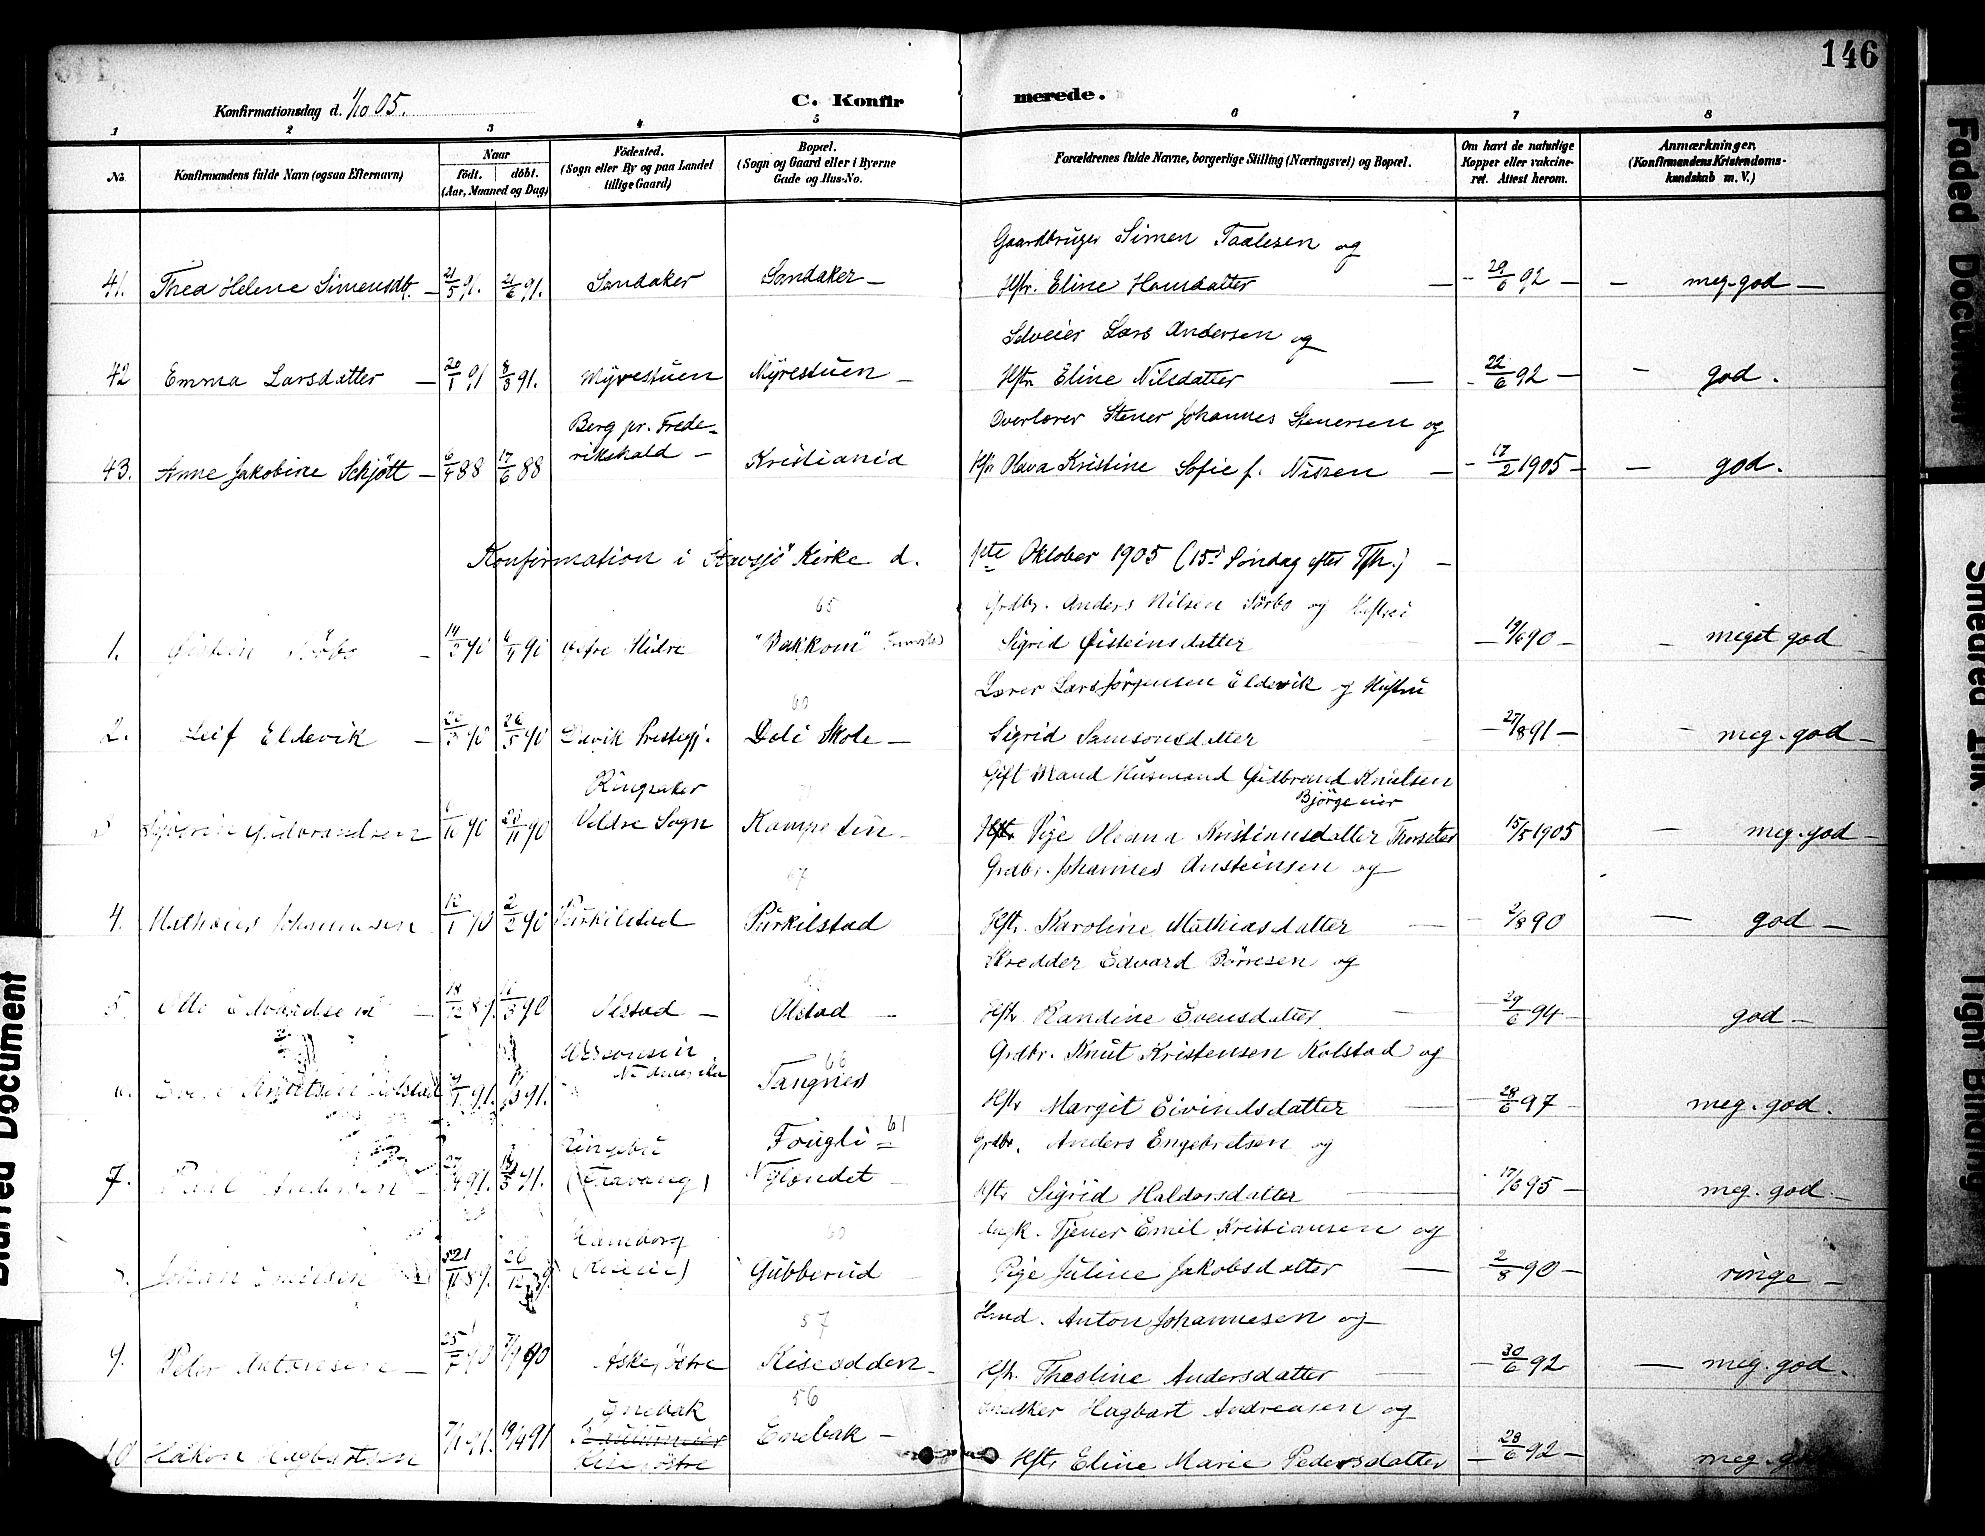 146
Konfirmationsdag d. 1/10 05.
C. Konfirmerede.
1 2 3 4 5 6 7 8
No. Konfirmandens fulde Navn (ogsaa Efternavn) Naar født. døbt. (Aar, Maaned og Dag) Fødested. (Sogn eller By og paa Landet tillige Gaard) Bopæl. (Sogn og Gaard eller i Byerne Gade og Hus-No. Forældrenes fulde Navne, borgerlige Stilling (Næringsvei) og Bopæl. Om havt de naturlige Kopper eller vakcineret. Attest herom. Anmærkninger, (Konfirmandens Kristendomskundskab m. V.)
Gaardbruger Simen Taalesen og
41. Thea Helene Simensdt. 21/5 91. 21/6 91. Sandaker Sandaker Hstr. Eline Hansdatter 29/6 92 meg. god
Selveier Lars Andersen og
42 Emma Larsdatter 20/1 91 8/3 91. Myrestuen Myrestuen Hstr Eline Nilsdatter 22/6 92 god.
Berg pr. Frede- Overlærer Stener Johannes Stenersen og
43. Anne Jakobine Schjött 6/4 88 17/6 88 rikshald Kristiania Hstr Olava Kristine Sofie f. Nissen 17/2 1905 god.
Konfirmation i Stavsjö Kirke d. 1ste Oktober 1905 (15d Søndag efter Tfh.)
65 Grdbr. Anders Nilsen Sørbo og Hustru
1. Øistein Sørbo 14/2 90 6/4 90 Østre Slidre "Bakkom" Sigrid Øisteinsdatter 19/6 90 meget god
60 Lærer Lars Jørgensen Eldevik og Hustru
2. Leif Eldevik 90 26/5 90 Davik Prestegj. Deli Skole Sigrid Samsonsdatter 27/8 91 meg. god
Ringsaker Gift Mand Husmand Gudbrand Knudsen
Bjørgeeier
3 Gudbrandsen 90 23/11 90 Veldre Sogn Kampestuen Pige Oleana Kristiansdatter Thorseter 15/5 1905 meg. god
67 Grdbr. Johannes Austeinsen og
4. Mathias Johannesen 12/1 90 2/2 90 Purkilstad Purkilstad Hstr. Karoline Mathiasdatter 2/8 90 god
Skredder Edvard Børresen og
5. Edvardsen 18/12 89. 16/3 90 Alstad Alstad Hstr Randine Evensdatter 29/6 94 god
66 Grdbr. Knut Kristensen Kolstad og
6. Knutsen Kolstad 91. 91. Tangnes Hstr Margit Eivindsdatter 28/6 97 meg. god.
Ringebu Fougli 61 Grdbr. Anders Engebretsen og
7. Andersen 91. 91. (Fåvang) Nylendet Hstr Sigrid Haldorsdatter 17/6 95 meg. god.
60 Ungk. Tjener Emil Kristiansen og
Johan Emilsen 21/11 89. 26/12 89 Gubberud Pige Juline Jakobsdatter 2/8 90 ringe
57 Hmd. Anton Johannesen og
9. Peder Antonsen 25/7 90 7/9 90 Aske, østre Riseodden Hstr. Theoline Andersdatter 30/6 92 meg. god.
Enebak 56 Hagbart Andreasen og
10 Håkon Hagbartsen 7/1 91. 19/4 91 østre Enebak Hstr Eline Marie Pedersdatter 28/6 92 meg. god
Faded Document
Smeared Ink
Tight Binding
Blurred Document